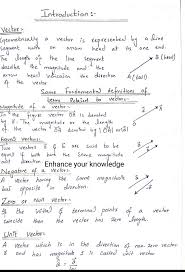 Introduction:-
Vector:-
Geometrically a vector is represented by a line
segment with an arrow head at its one end.
The length of the line segment
describe the magnitude and
arrow head indicates the direction
of the vector.
B (head)
A (tail)
Some Fundamental definitions of
terms Related to vectors:-
Magnitude of a vector:-
In the figure vector OA is denoted
by ā. The magnitude or the length
of the vector OA denoted by |OA| or |ā|
Equal vectors
Two vectors ā and are said to be
equal if both but the same magnitude
Enhance your knowledge
Negative of a vector:-
A vector having the same magnitude
but opposite in direction.
Zero or Null vector
If the initial & terminal points of a vector
coincide then the vector has zero length.
Unit Vector
A vector which is in the direction of non zero vector
and has magnitude 1 is called unit vector